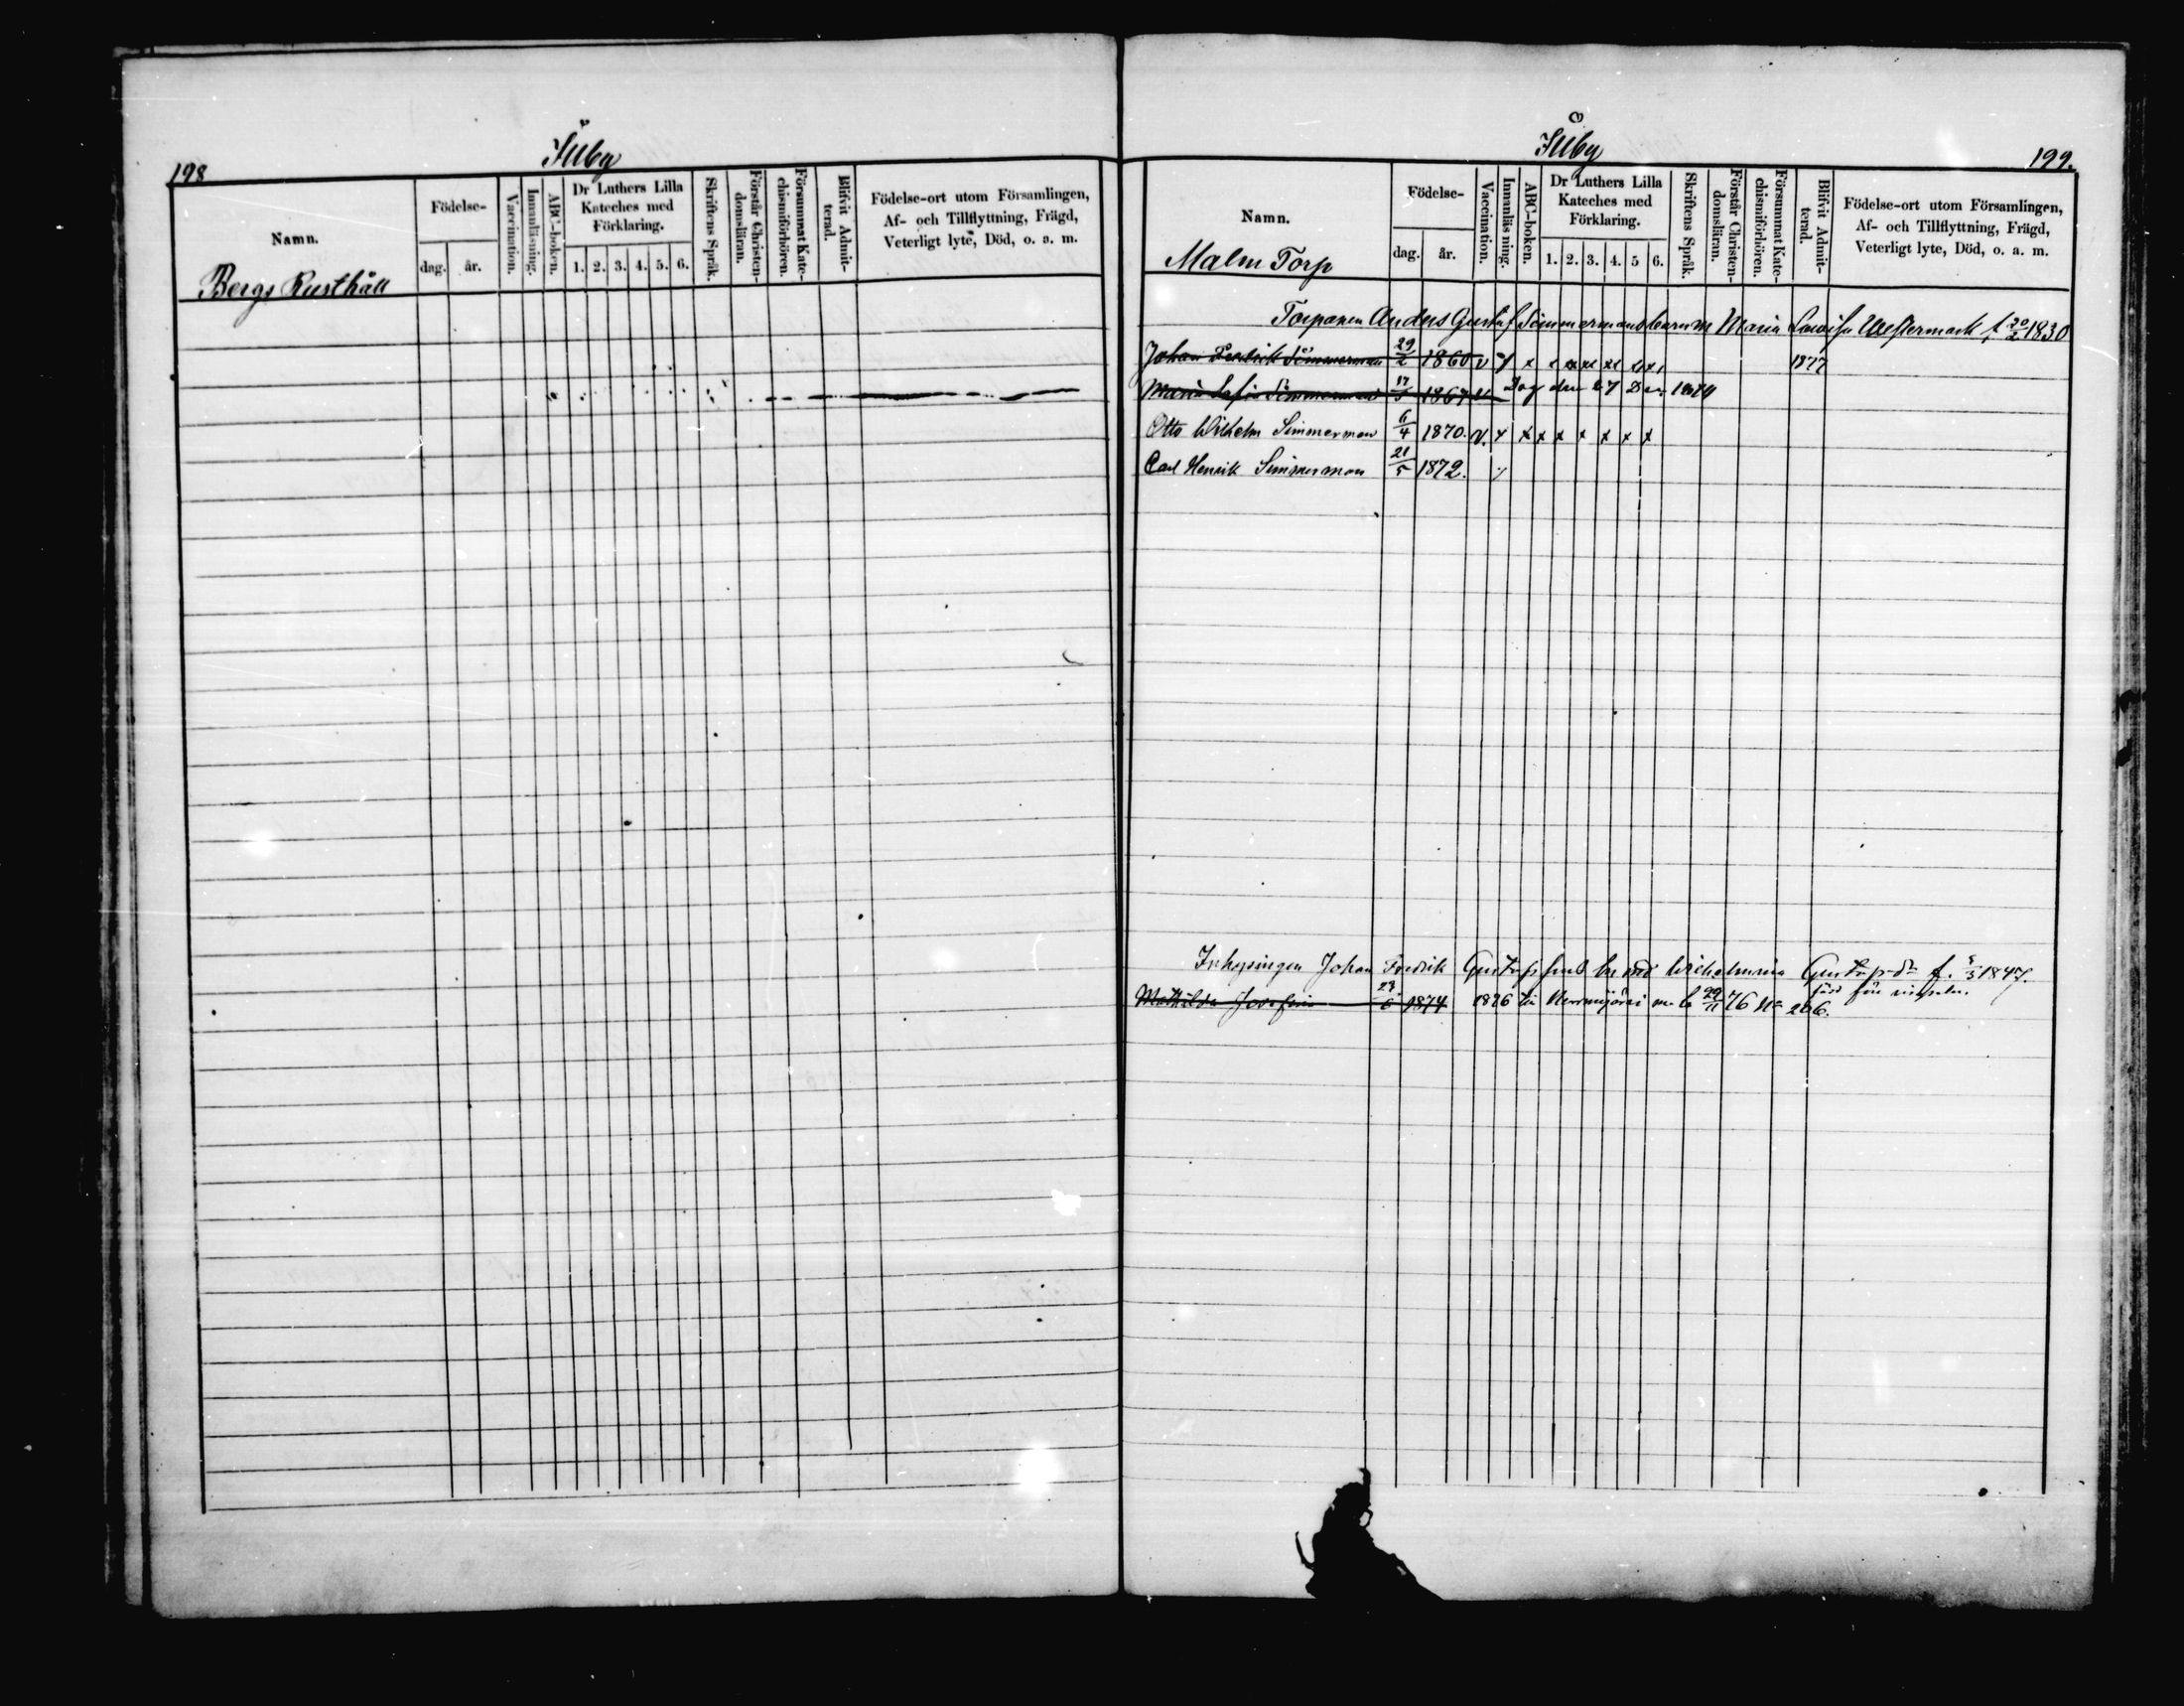 198
Bergs Rusthåll
Namn.
Födelse-
dag. år.
Vaccination.
Innanläsning.
ABC-boken.
Dr Luthers Lilla
Kateches med
Förklaring.
1. 2. 3. 4. 5. 6.
Skriftens Språk.
Förstår Christen-
domsläran.
Försummat Kate-
chismiförhören.
Blifvit Admit-
terad.
Födelse-ort utom Församlingen,
Af- och Tillflyttning, Frägd,
Veterligt lyte, Död, o. s. m.
199.
Namn.
Malm Torp
Födelse-
dag. år.
Vaccination.
Innanläsning.
ABC-boken.
Dr Luthers Lilla
Kateches med
Förklaring.
1. 2. 3. 4. 5 6.
Skriftens Språk.
Förstår Christen-
domsläran.
Försummat Kate-
chismiförhören.
Blifvit Admit-
terad.
Födelse-ort utom Församlingen,
Af- och Tillflyttning, Frägd,
Veterligt lyte, Död, o. a. m.
Torparen Anders Gustaf Simmermans barn m Maria Lovisa Westermark f. 20/2 1830
Johan Fredrik Simmerman 29/2 1860 v x x x xx xx xx xx 1877
Maria Sofia Simmerman 17/5 1867 v Dog den 27 Dec 1874
Otto Wilhelm Simmerman 6/4 1870. v. x x x x x x x x
Carl Henrik Simmerman 21/5 1872.
Inhysingen Johan Fredrik Gustafs barn med Wilhelmina Gustafs dr f. 5/3 1847.
Mathilda Josefina 23/6 1874 1876 till m b 29/11 76 No 206.